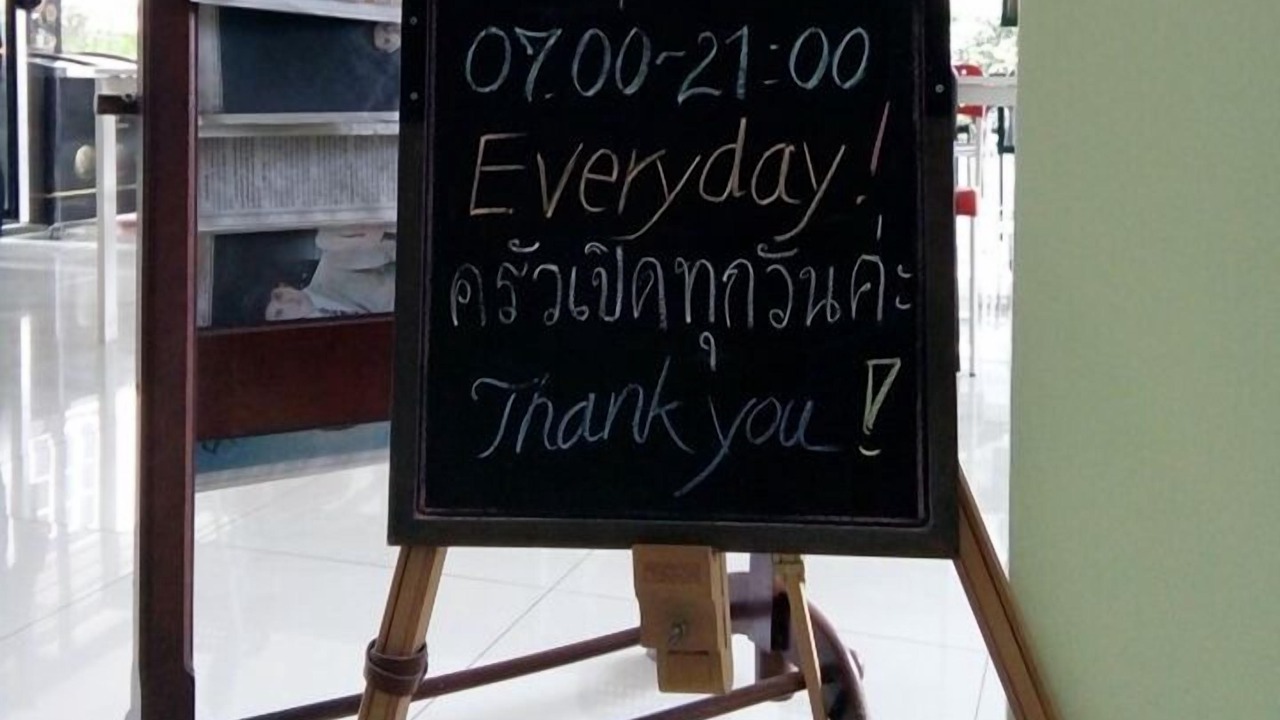 07.00-21:00
Everyday!
ครัวเปิดทุกวันค่ะ
Thank you!